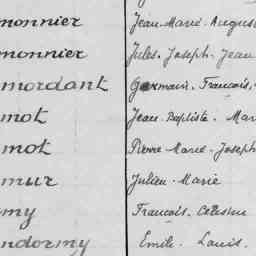 monnier Jean. Marie. August
monnier Jules. Joseph. Jean
mordant Germain. Francois.
mot Jean. Baptiste. Mar
mot Pierre. Marie. Joseph
mur Julien. Marie
my Francois. Celestin
ndormy Emile. Louis.